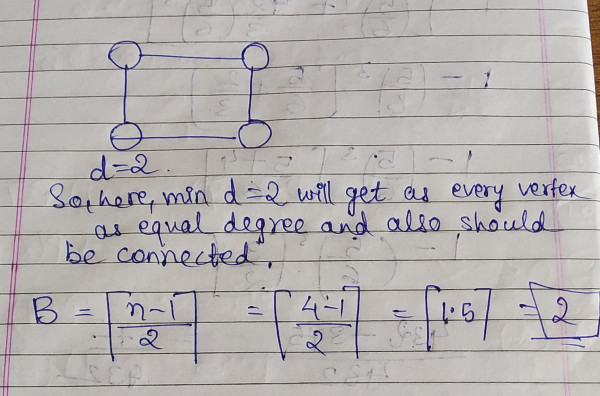 d=2.
So, here, min d=2 will get as every vertex
as equal degree and also should
be connected.
B = ⌈n-1/2⌉ = ⌈4-1/2⌉ = ⌈1.5⌉ = 2